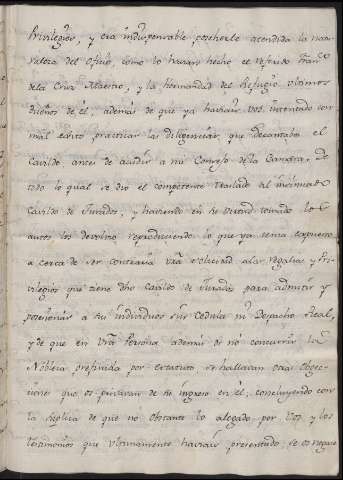 Privilegios, y era indispensable poseherle atendida la natu
raleza del Oficio, como lo havian hecho el referido Fran.co
de la Cruz Maestro, y la Hermandad del Refugio ultimos
dueños de él, además de que ya haviais vos intentado con
mal exito practicar las diligencias, que decantaba el
Cavildo antes de acudir a mi Consejo de la Camara, De
todo lo qual se dio el competente traslado al
Cavildo de Jurados, y haviendo en su virtud tomado los
autos los devolvio reproduciendo lo que ya tenia expuesto
a cerca de ser contraria vra solicitud a las regalias y Pri
vilegios que tiene dho Cavildo de Jurados para admitir y
posesionar a sus individuos sin Cedula ni Despacho Real,
y de que en vra Persona además de no concurrir la
Nobleza prefinida por estatuto se hallavan otras Obgec
ciones que os privavan de su ingreso en él, concluyendo con
la suplica de que no obstante lo alegado por Vos, y los
testimonios que ultimamente haviais presentado, se os negase